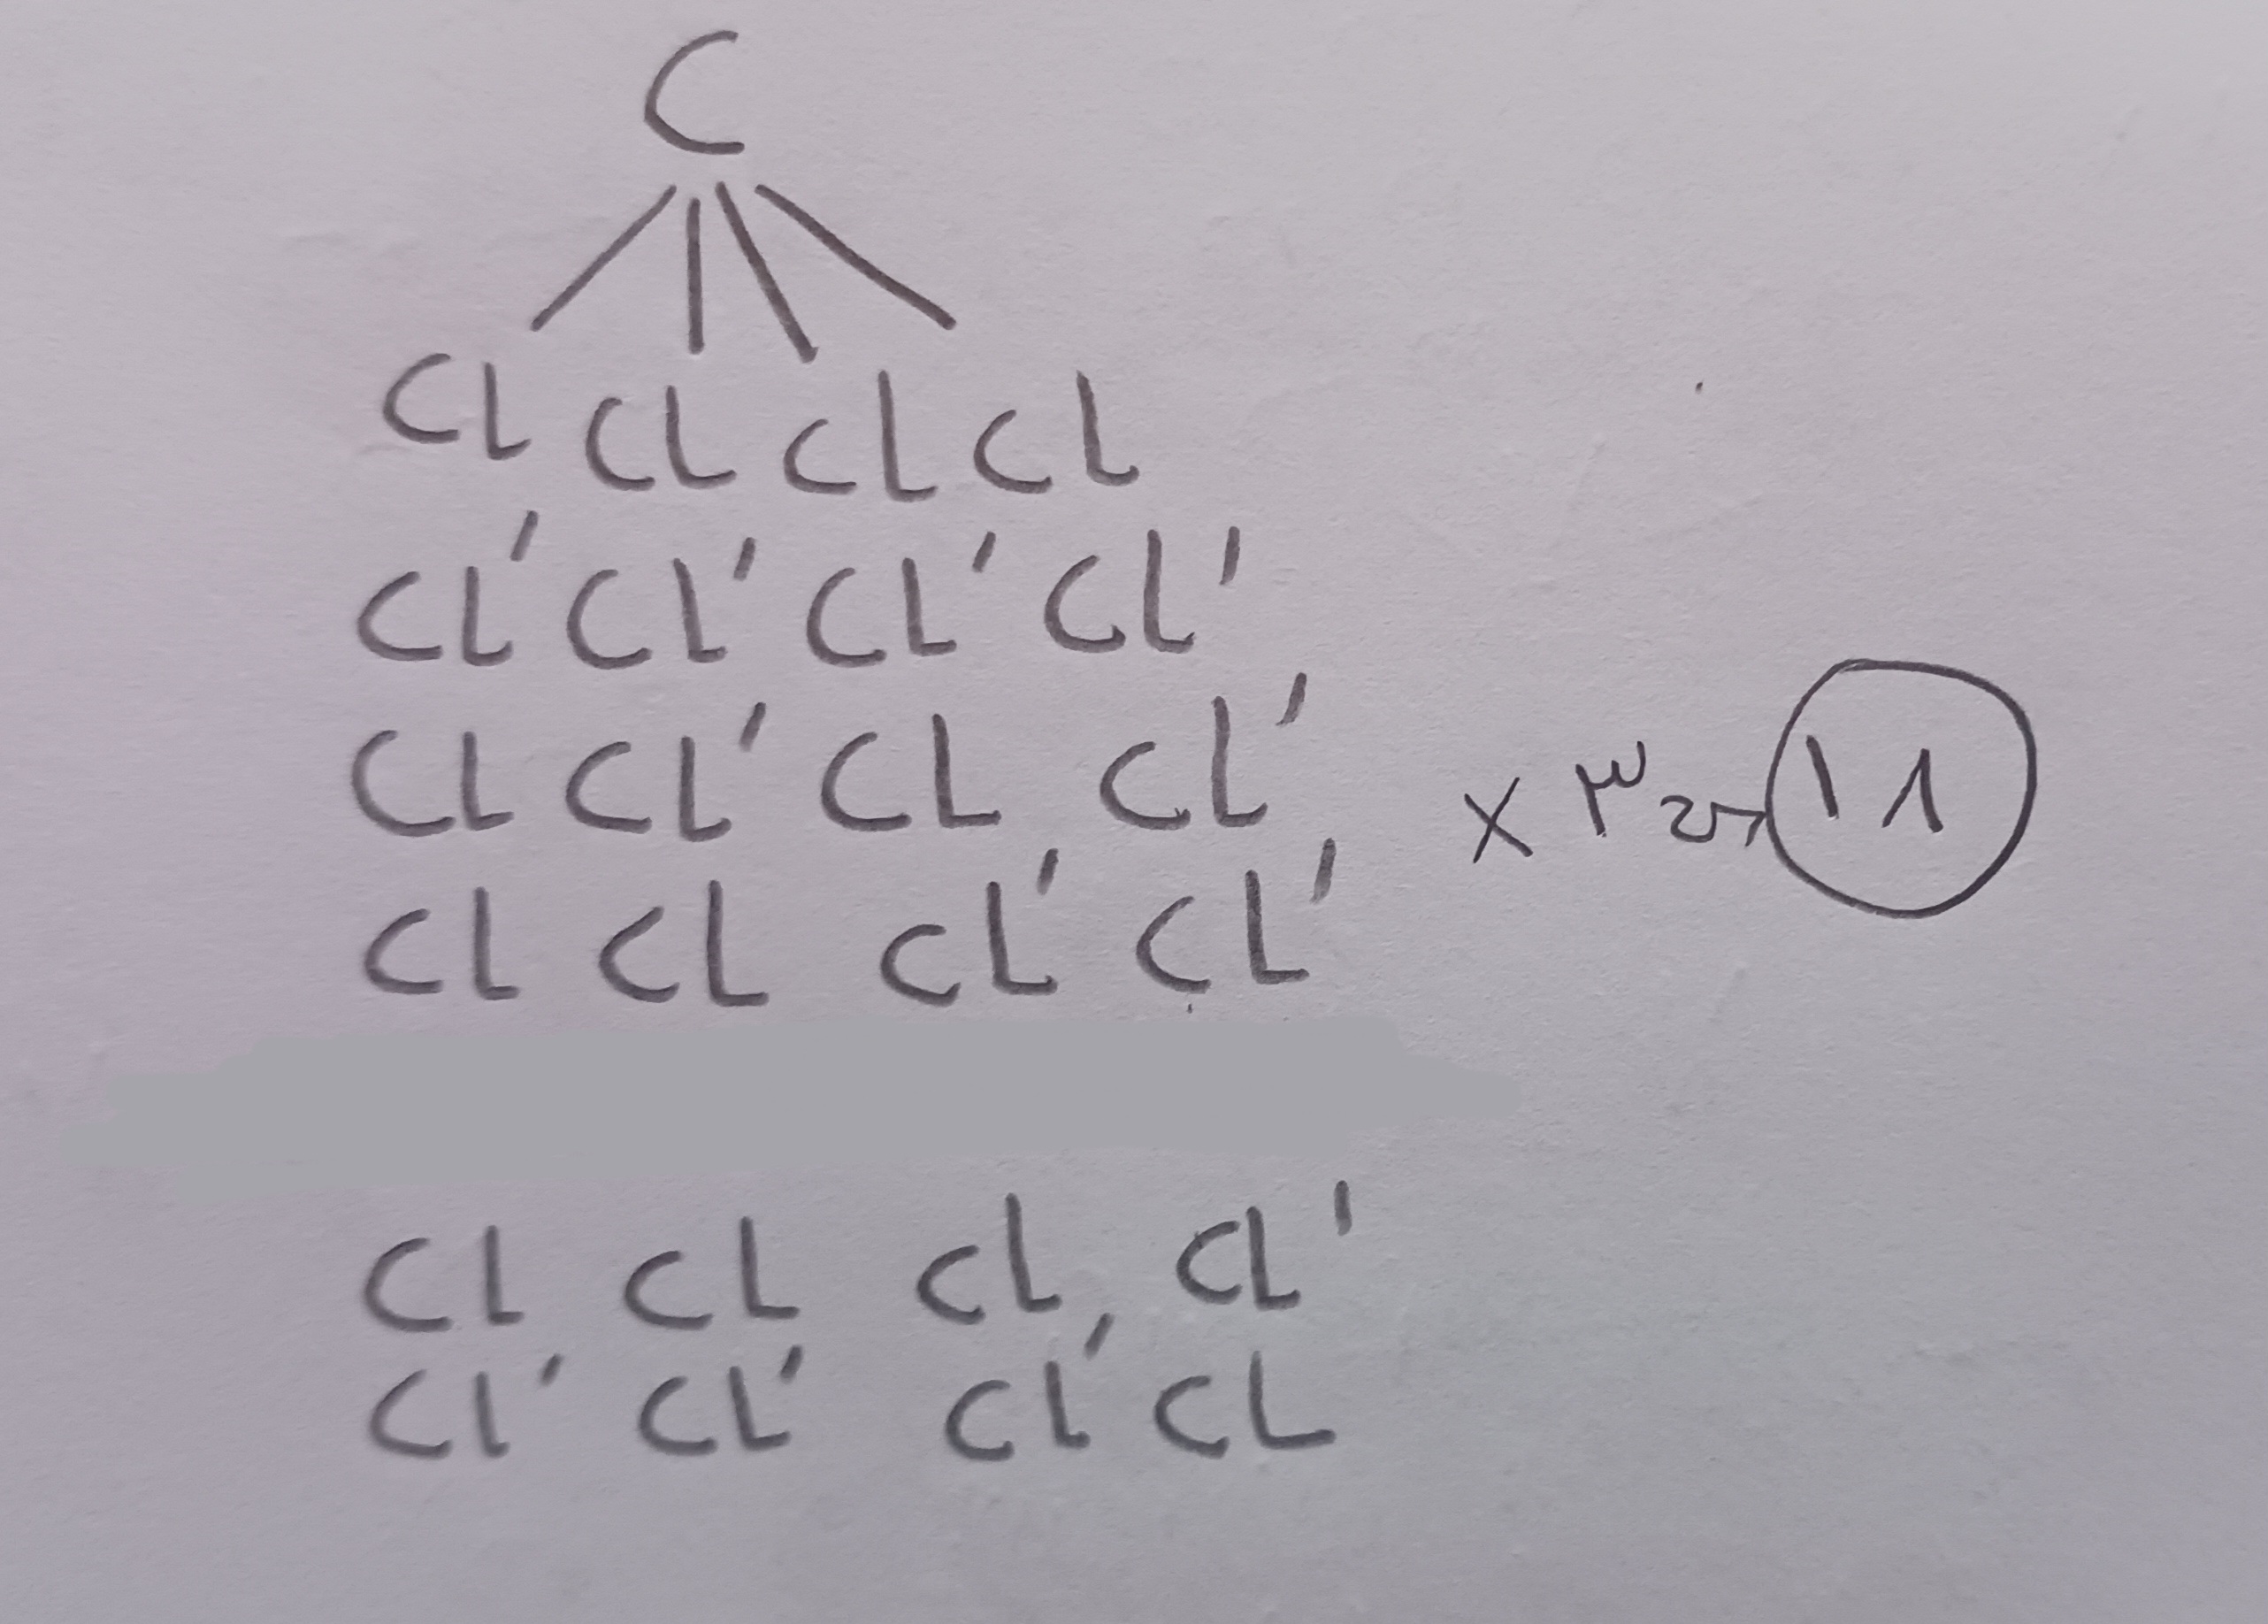 C
Cl Cl Cl Cl
Cl' Cl' Cl' Cl'
Cl Cl' Cl Cl'
× ۳ ۱۸
Cl Cl Cl' Cl'
Cl Cl Cl Cl'
Cl' Cl' Cl' Cl